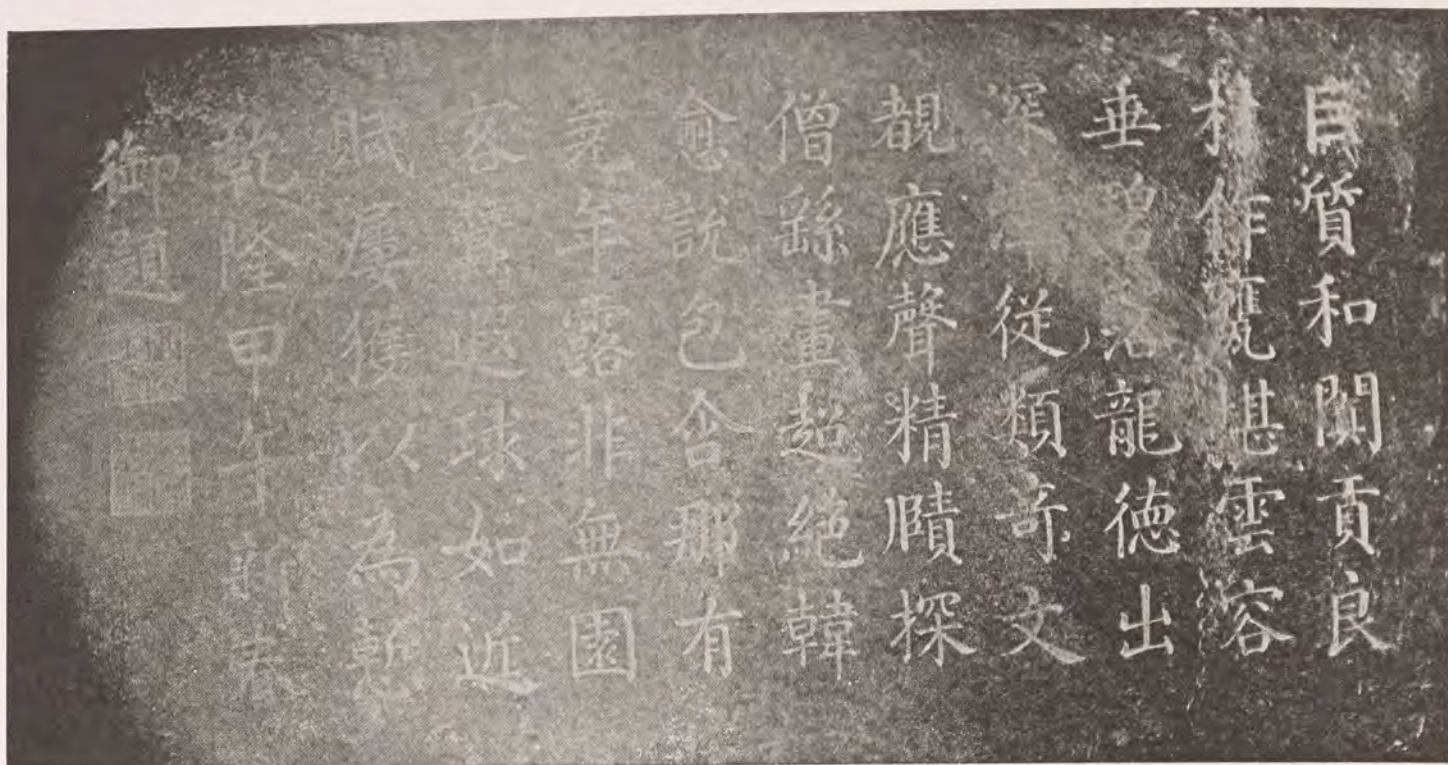 巨質和闐貢良
材作甕堪雲容
垂碧落龍德出
深潭從類奇文
覩應聲精賾探
僧繇畫超絕韓
愈說包含那有
堯年露非無園
客蠶遐球如近
賦屢獲以為慙
乾隆甲午新春
御題